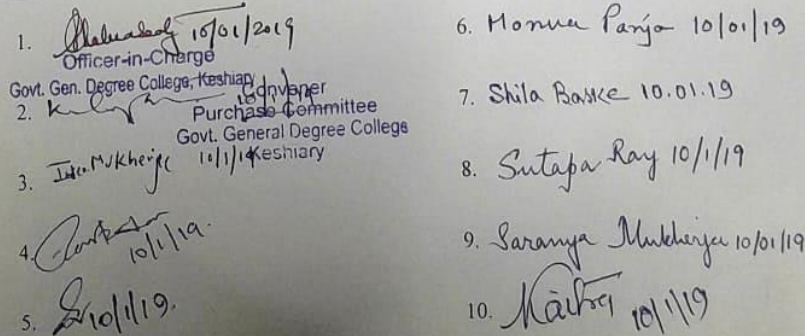 1. 10/01/2019
Officer-in-Charge
Govt. Gen. Degree College, Keshiary
2. Convener
Purchase Committee
Govt. General Degree College
Keshiary
3. Mukherjee 10/1/19
4. 10/1/19.
5. 10/1/19.
6. Monua Panja 10/01/19
7. Shila Baske 10.01.19
8. Sutapa Ray 10/1/19
9. Saranya Mukherjee 10/01/19
10. Maitra 10/1/19